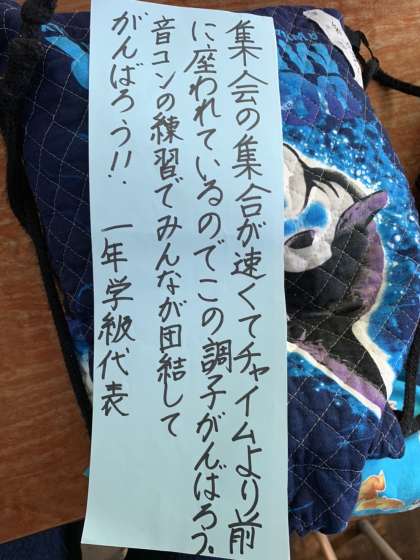 集会の集合が速くてチャイムより前
に座われているのでこの調子がんばろう。
音コンの練習でみんなが団結して
がんばろう!!
一年学級代表